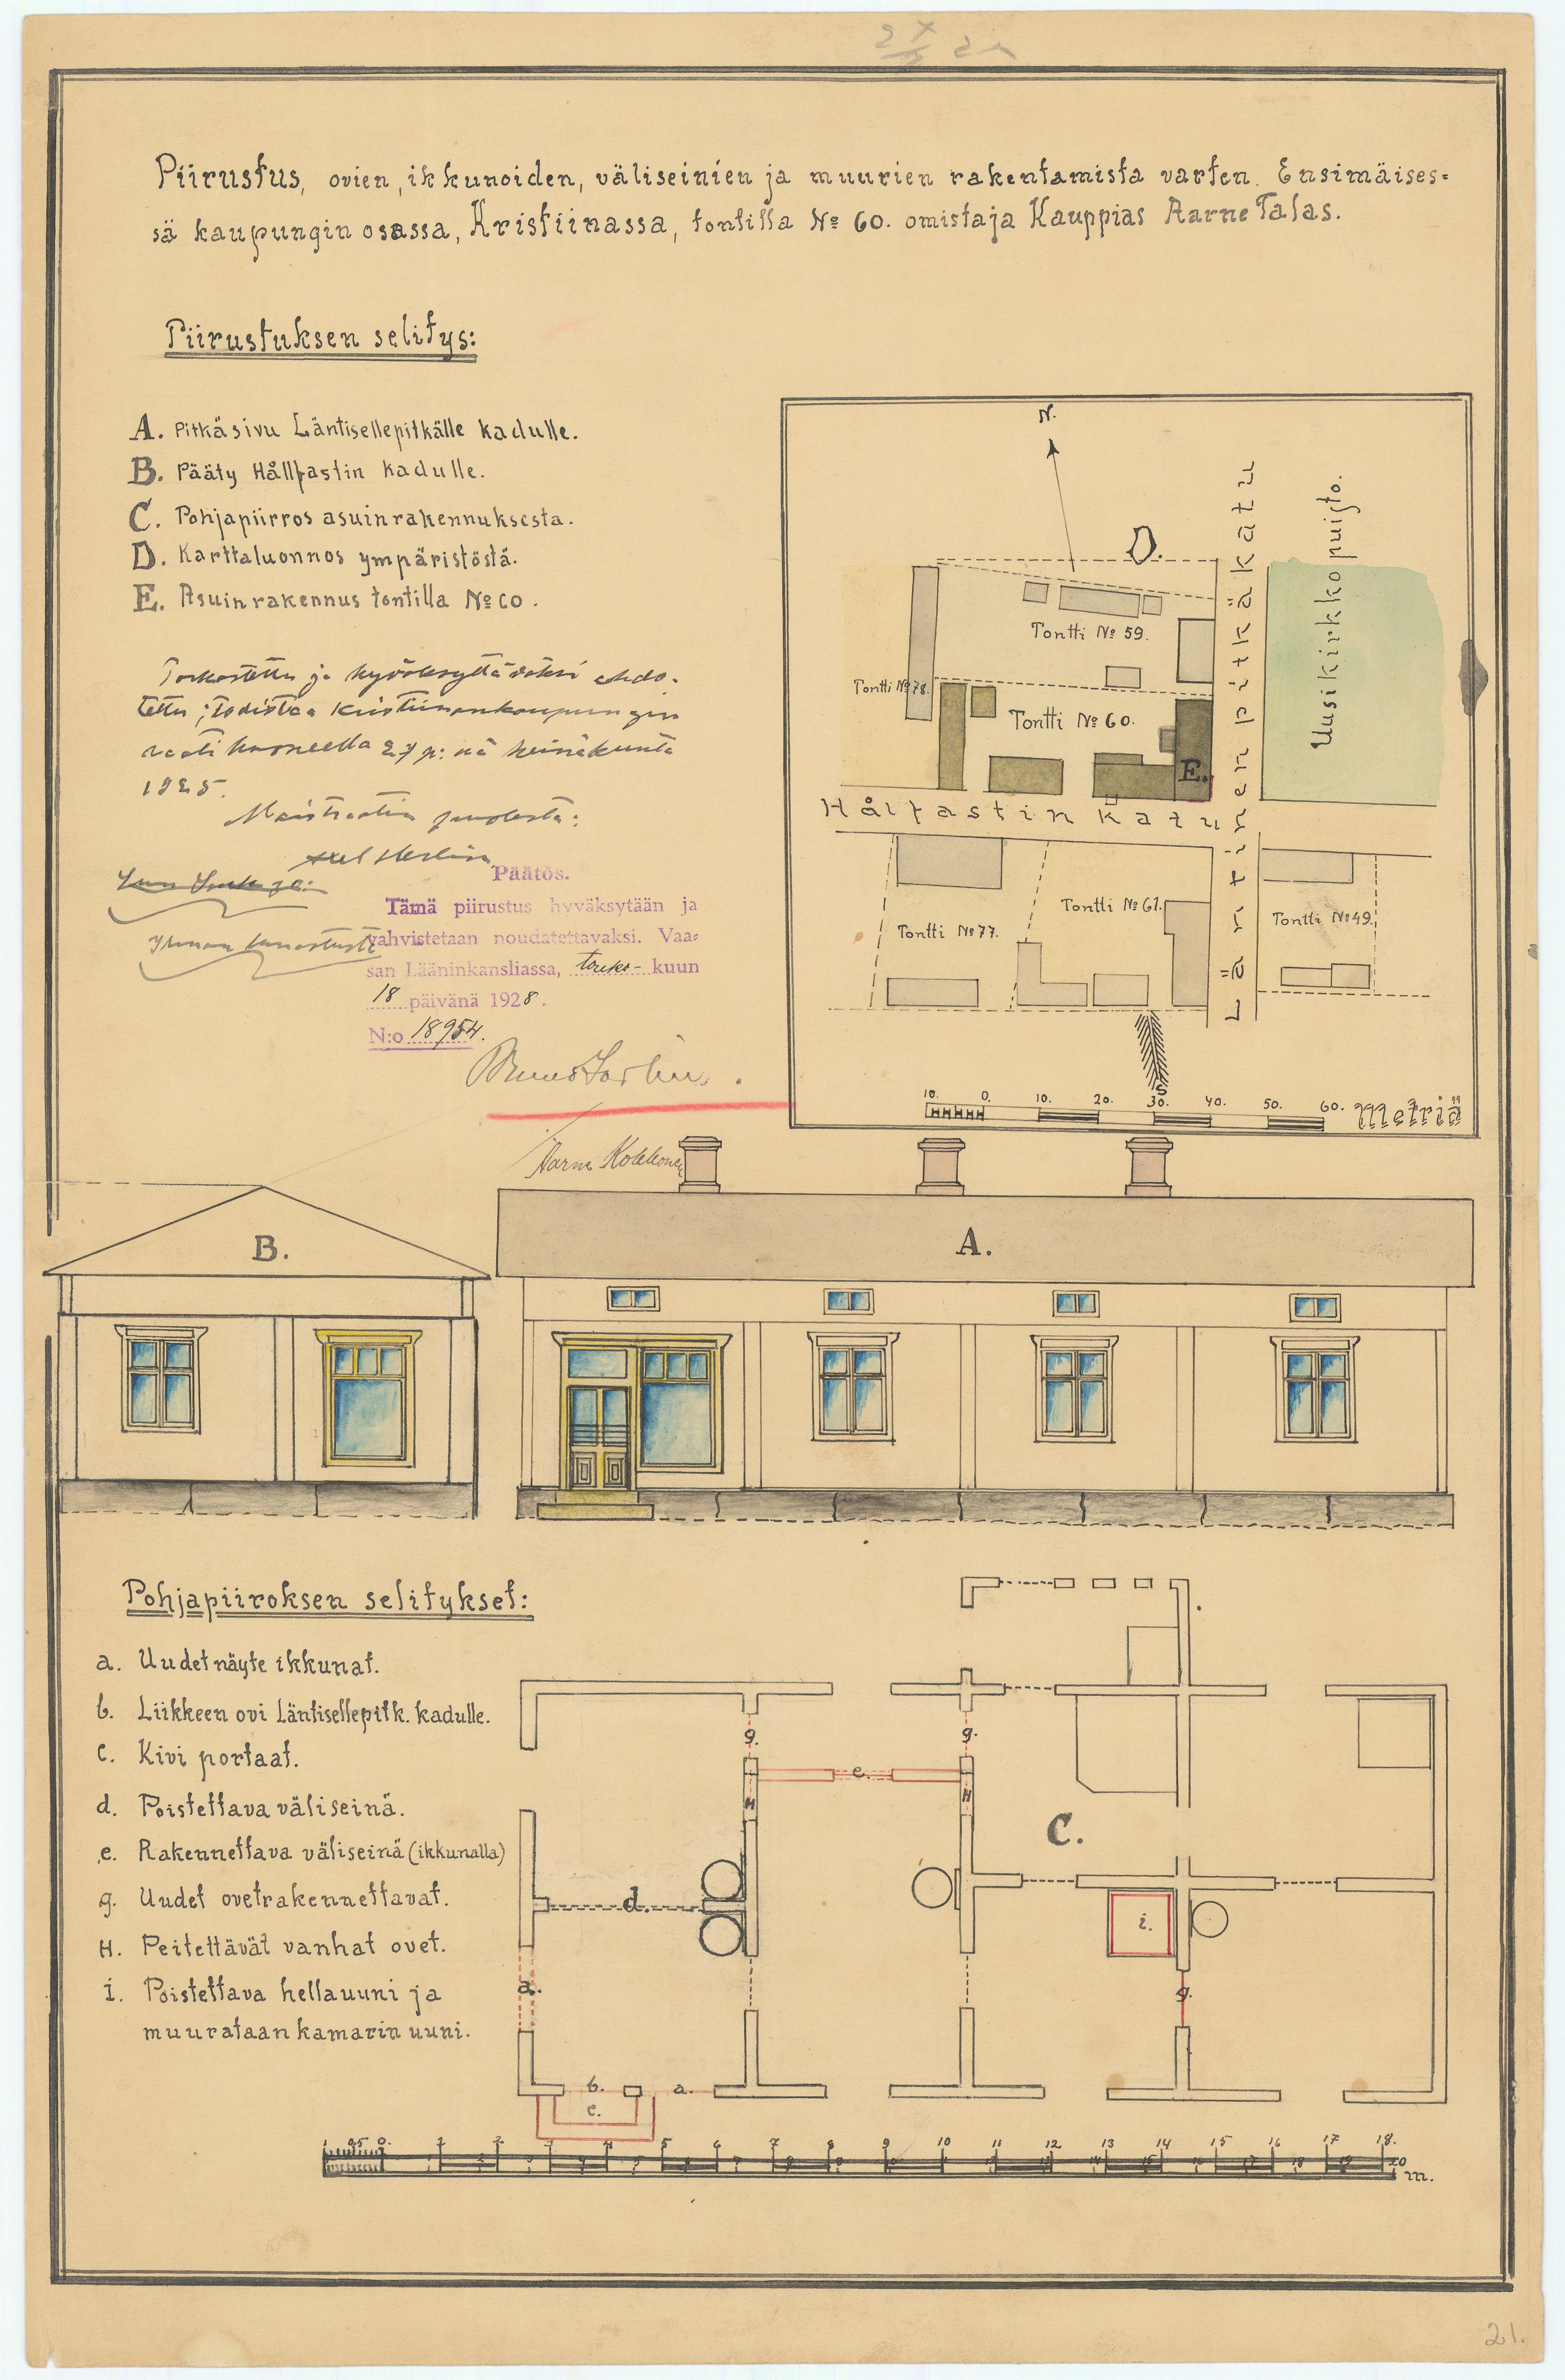 Piirustus, ovien, ikkunoiden, väliseinien ja muurien rakentamista varten. Ensimäises=
sä kaupungin osassa, Kristiinassa, tontilla № 60. omistaja Kauppias Aarne Talas.
Piirustuksen selitys:
A. Pitkäsivu Läntisellepitkälle kadulle.
B. Pääty Hållfastin kadulle.
C. Pohjapiirros asuinrakennuksesta.
D. Karttaluonnos ympäristöstä.
E. Asuinrakennus tontilla № 60.
Tarkastettu ja hyväksyttäväksi ehdo-
tettu; todistaa Kristiinankaupungin
raatihuoneella 27 p:nä heinäkuuta
1925.
Maistraatin puolesta:
Päätös.
Tämä piirustus hyväksytään ja
vahvistetaan noudatettavaksi. Vaa=
san Lääninkansliassa, touko- kuun
18 päivänä 1928.
N:o 18954.
Aarne Kokkonen
N.
D.
Tontti № 59.
Tontti № 78.
Tontti № 60.
E.
Läntinen pitkäkatu
Uusikirkkopuisto.
Hålfastin katu
Tontti № 61.
Tontti № 77.
Tontti № 49.
S
10. 0. 10. 20. 30. 40. 50. 60. Metriä
B.
A.
Pohjapiiroksen selitykset:
a. Uudet näyte ikkunat.
b. Liikkeen ovi Läntisellepitk. kadulle.
c. Kivi portaat.
d. Poistettava väliseinä.
e. Rakennettava väliseinä (ikkunalla)
g. Uudet ovet rakennettavat.
H. Peitettävät vanhat ovet.
i. Poistettava hellauuni ja
muurataan kamarin uuni.
g. g.
e.
H H
C.
d.
i.
a.
g.
b. a.
c.
1 95 0. 1 2 3 4 5 6 7 8 9 10 11 12 13 14 15 16 17 18.
20
m.
21.